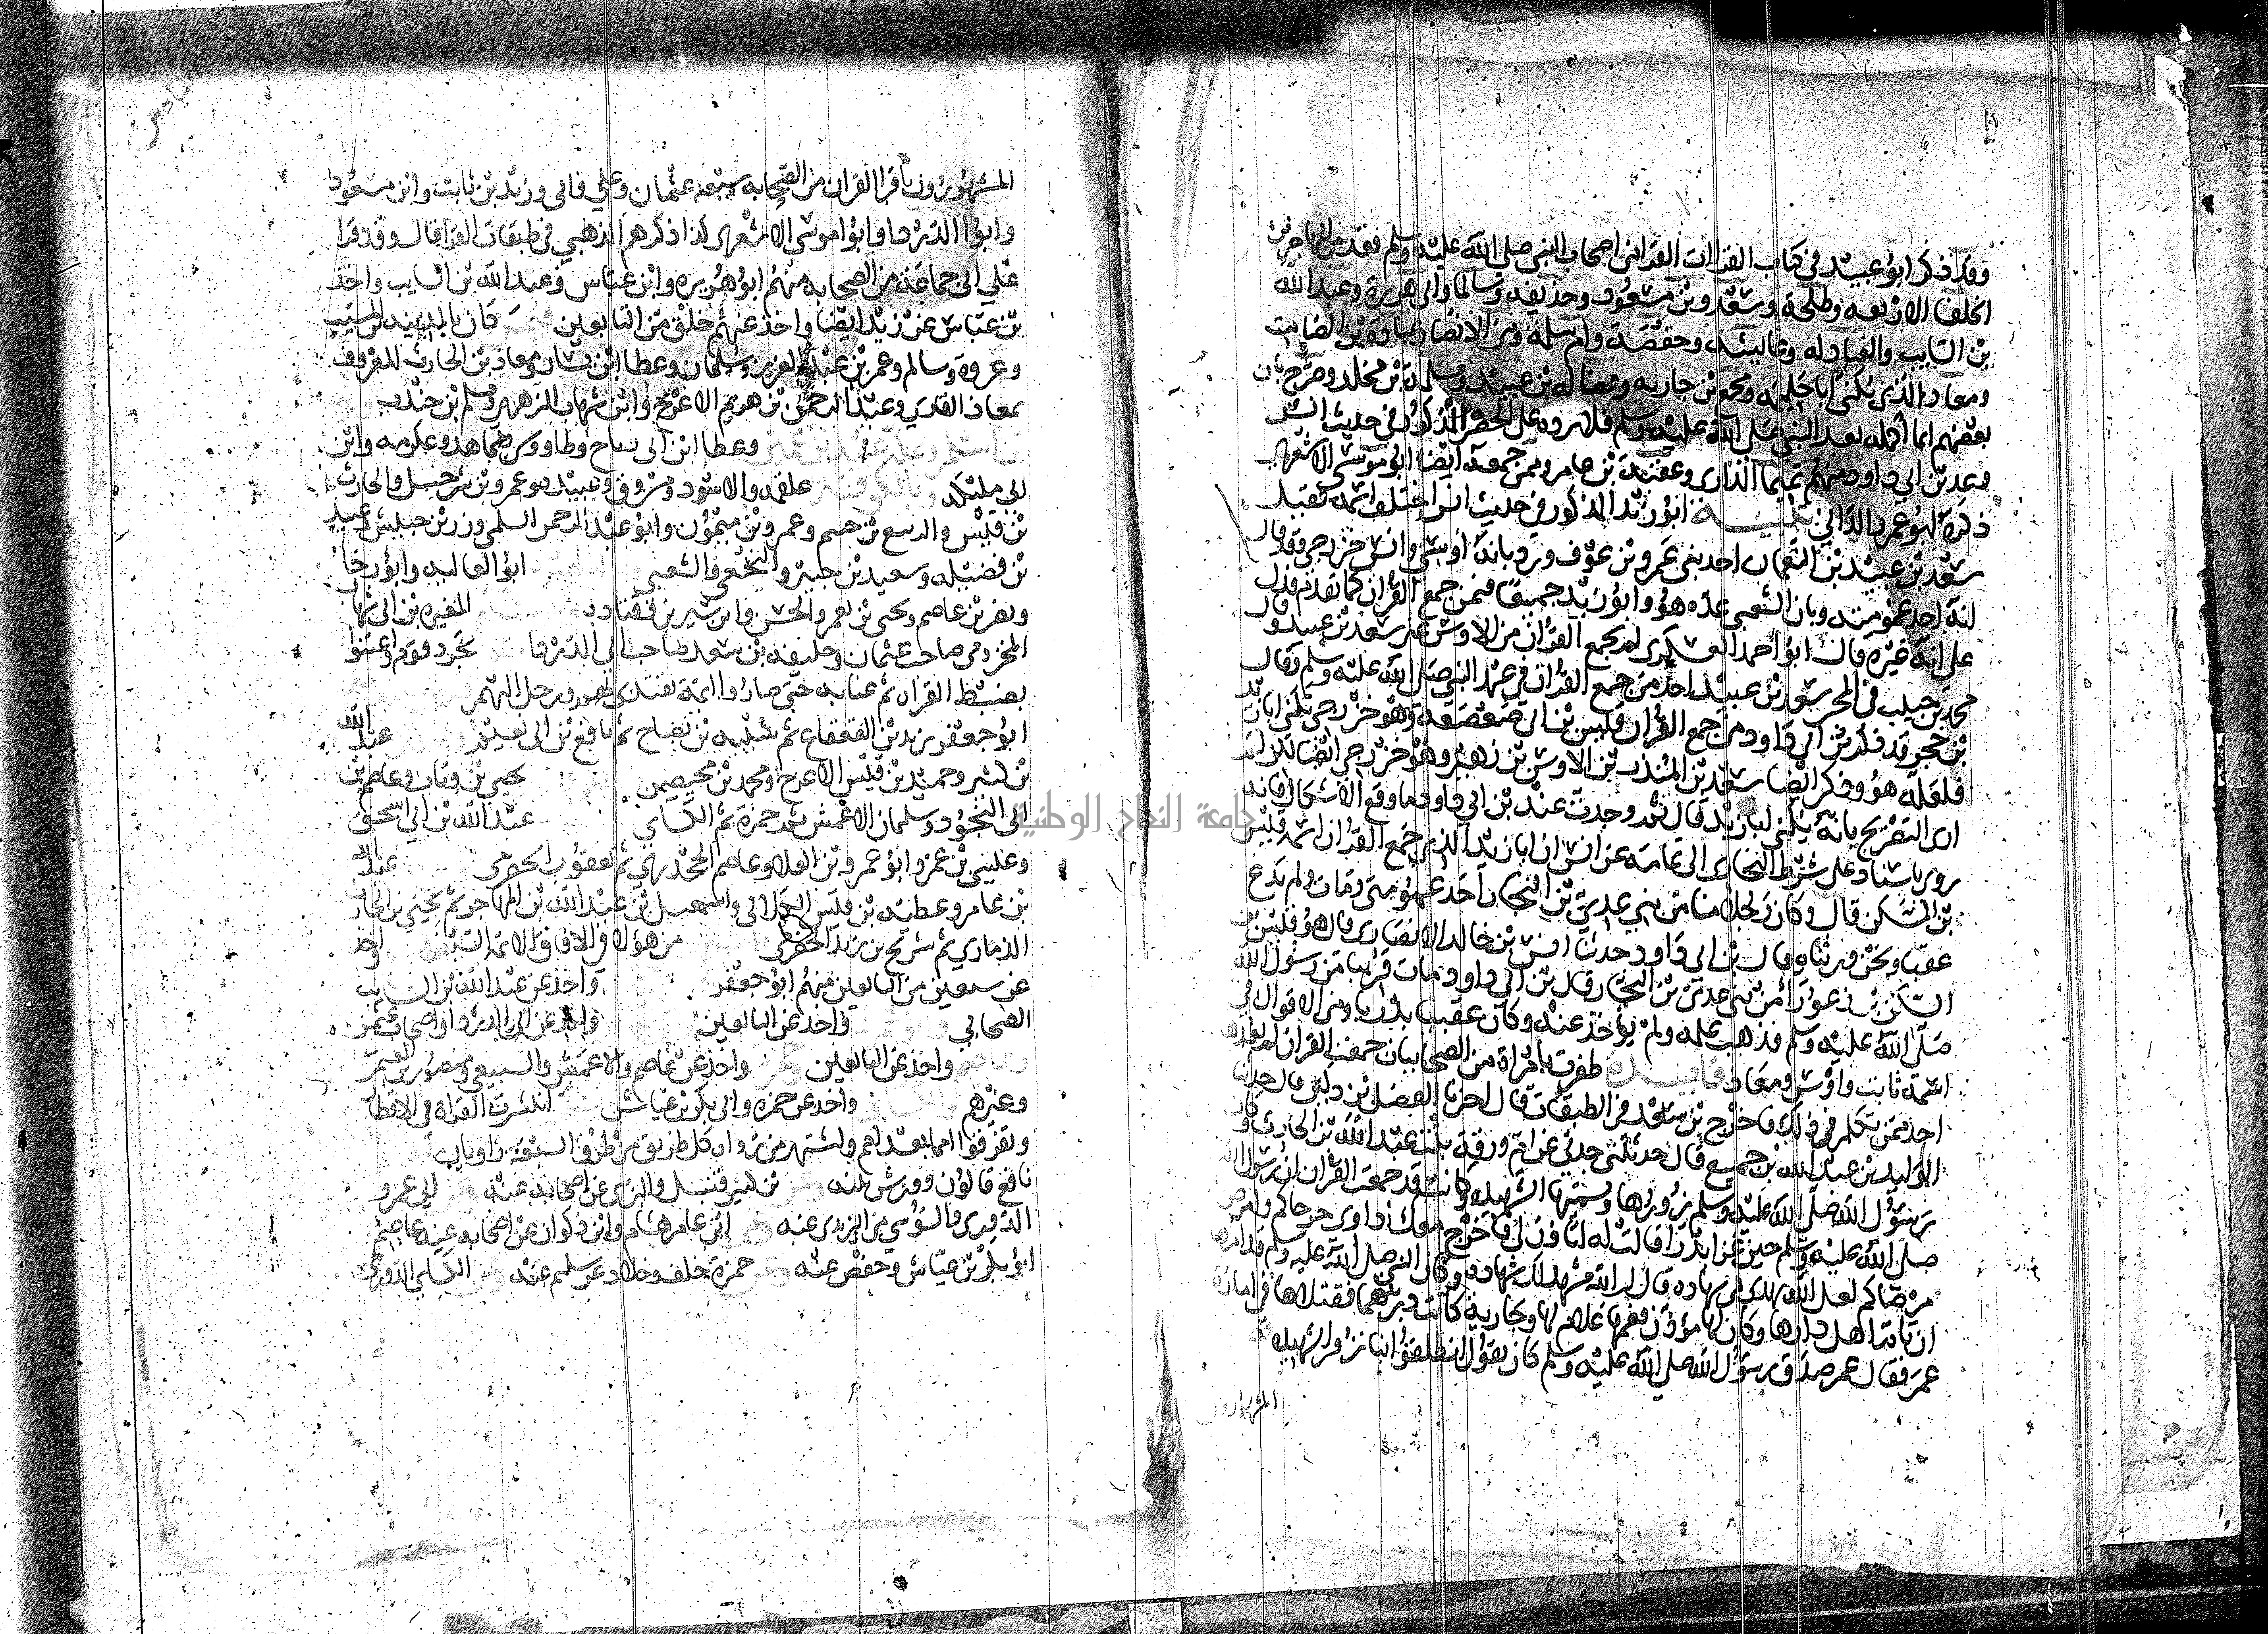 وقد ذكر ابو عبيد في كتاب القراات القرا من اصحاب النبي صلى الله عليه وسلم فعد من المهاجرين
الخلفا الاربعه وطلحة وسعد وبن مسعود وحذيفه وسالما وابى هريرة وعبد الله
بن السايب والعبادله وعايشه وحفصة وام سلمه ومن الانصار عبادة بن الصامت
ومعاذ الذي يكنى ابا حليمه ومجمع بن جاريه وفضاله بن عبيد ومسلمة بن مخلد وصرح بان
بعضهم انما اكمله بعد النبي صلى الله عليه وسلم فلا يرد على الحصر المذكور في حديث انس
وعد بن ابي داود منهم تميما الدارى وعقبة بن عامر وممن جمعه ايضا ابو موسى الاشعرى
ذكره ابو عمرو الدانى تنبيه ابو زيد المذكور في حديث انس اختلف في اسمه فقيل
سعد بن عبيد بن النعمان احد بنى عمرو بن عوف ورد بانه اوسى وانس خزرجى وقد قال
انه احد عمومته وبان الشعبى عده هو وابو زيد جميعا فيمن جمع القران كما تقدم فدل
على انه غيره قال ابو احمد العسكرى لم يجمع القران من الاوس غير سعد بن عبيد وقال
محمد بن حبيب في المحبر سعد بن عبيد احد من جمع القران في عهد النبي صلى الله عليه وسلم وقال
بن حجر قد ذكر بن ابي داود من جمع القران قيس بن ابي صعصعة وهو خزرجى يكنى ابا زيد
فلعله هو وذكر ايضا سعد بن المنذر بن الاوس بن زهير وهو خزرجى ايضا لكن لم
ارى التصريح بانه يكنى ابا زيد قال ثم وجدت عند بن ابي داود ما رفع الاشكال فانه
روى باسناد على شرط البخارى الى ثمامه عن انس ان ابا زيد الذى جمع القران اسمه قيس
بن السكن قال وكان رجلا منا من بني عدي بن النجار احد عمومتى ومات ولم يدع
عقبا ونحن ورثناه قال بن ابي داود حدثنا انس بن خالد الانصارى قال هو قيس بن
السكن بن زعورا من بني عدى بن النجار قال بن ابي داود مات قريبا من رسول الله
صلى الله عليه وسلم فذهب علمه ولم يؤخذ عنه وكان عقبيا بدريا ومن الاقوال في
اسمه ثابت واوس ومعاذ فايده ظفرت بامراة من الصحابيات جمعت القران لم يعدها
احد ممن تكلم في ذلك فاخرج بن سعد في الطبقات قال اخبرنا الفضل بن دكين قال حدثنا
الوليد بن عبد الله بن جميع قال حدثتنى جدتى عن ام ورقة بنت عبد الله بن الحارث وكان
رسول الله صلى الله عليه وسلم يزورها ويسميها الشهيده وكانت قد جمعت القران ان رسول الله
صلى الله عليه وسلم حين غزا بدرا قالت له اتاذن لي فاخرج معك اداوى جرحاكم وامرض
مرضاكم لعل الله يهدى لى شهاده قال ان الله مهد لك شهاده وكان النبي صلى الله عليه وسلم قد امرها
ان تام اهل دارها وكان لها مؤذن فغمها غلام لها وجارية كانت دبرتهما فقتلاها في امارة
عمر فقال عمر صدق رسول الله صلى الله عليه وسلم كان يقول انطلقوا بنا نزور الشهيده
المشهورون
المشهورون باقرا القران من الصحابه سبعه عثمان وعلي وابى وزيد بن ثابت وابن مسعود
وابوا الدردا وابوا موسى الاشعرى كذا ذكرهم الذهبي في طبقات القرا قال وقد قرا
على ابى جماعة من الصحابه منهم ابو هريره وابن عباس وعبد الله بن السايب واخذ
بن عباس عن زيد ايضا واخذ عنهم خلق من التابعين كان بالمدينه بن المسيب
وعروة وسالم وعمر بن عبد العزيز وسلمان وعطا ابن يسار ومعاذ بن الحارث المعروف
بمعاذ القارى وعبد الرحمن بن هرمز الاعرج وابن شهاب الزهرى ومسلم بن جندب
وعطا ابن ابى رباح وطاووس ومجاهد وعكرمه وابن
ابى مليكه وبالكوفة علقمه والاسود ومسروق وعبيده وعمرو بن شرحبيل والحارث
بن قيس والربيع بن خيثم وعمرو بن ميمون وابو عبد الرحمن السلمى وزر بن حبيش وعبيد
بن فضيله وسعيد بن جبير والنخعى والشعبى ابو العاليه وابو رجا
ونصر بن عاصم ويحيى بن يعمر والحسن وابن سيرين وقتاده المغيره بن ابى شهاب
المخزومى صاحب عثمان وخليفه بن سعد صاحب ابى الدردا تجرد قوم واعتنوا
بضبط القراه تم عنايه حتى صاروا ايمة يقتدى بهم ويرحل اليهم
ابو جعفر يزيد بن القعقاع ثم شيبه بن نصاح ثم نافع بن ابى نعيم عبد الله
بن كثير وحميد بن قيس الاعرج ومحمد بن محيصن يحيى بن وثاب وعاصم بن
ابى النجود وسليمان الاعمش ثم حمزة ثم الكساى عبد الله بن ابى اسحق
وعيسى بن عمر وابو عمرو بن العلا وعاصم الجحدري ثم يعقوب الحضرمى عبد الله
بن عامر وعطيه بن قيس الكلابى واسمعيل بن عبد الله بن المهاجر ثم يحيى بن الحارث
الذمارى ثم شريح بن يزيد الحضرمى من هؤلا في الافاق الايمة السبعة اخذ
عن سبعين من التابعين منهم ابو جعفر واخذ عن عبد الله بن السايب
الصحابي واخذ عن التابعين واخذ عن ابى الدردا واصحاب عثمن
واخذ عن التابعين واخذ عن عاصم والاعمش والسبيعى ومنصور بن المعتمر
وغيرهم واخذ عن حمزه وابى بكر بن عياش انتشرت القراة في الاقطار
وتفرقوا امما بعد امم واشتهر من رواة كل طريق من طرق السبعه راويان
نافع قالون وورش عنه بن كثير قنبل والبزى عن اصحابه عنه ابي عمرو
الدورى والسوسي عن اليزيدى عنه ابن عامر هشام وابن ذكوان عن اصحابه عنه عاصم
ابو بكر بن عياش وحفص عنه حمزة خلف وخلاد عن سليم عنه الكساى الدورى
جامعة النجاح الوطنية